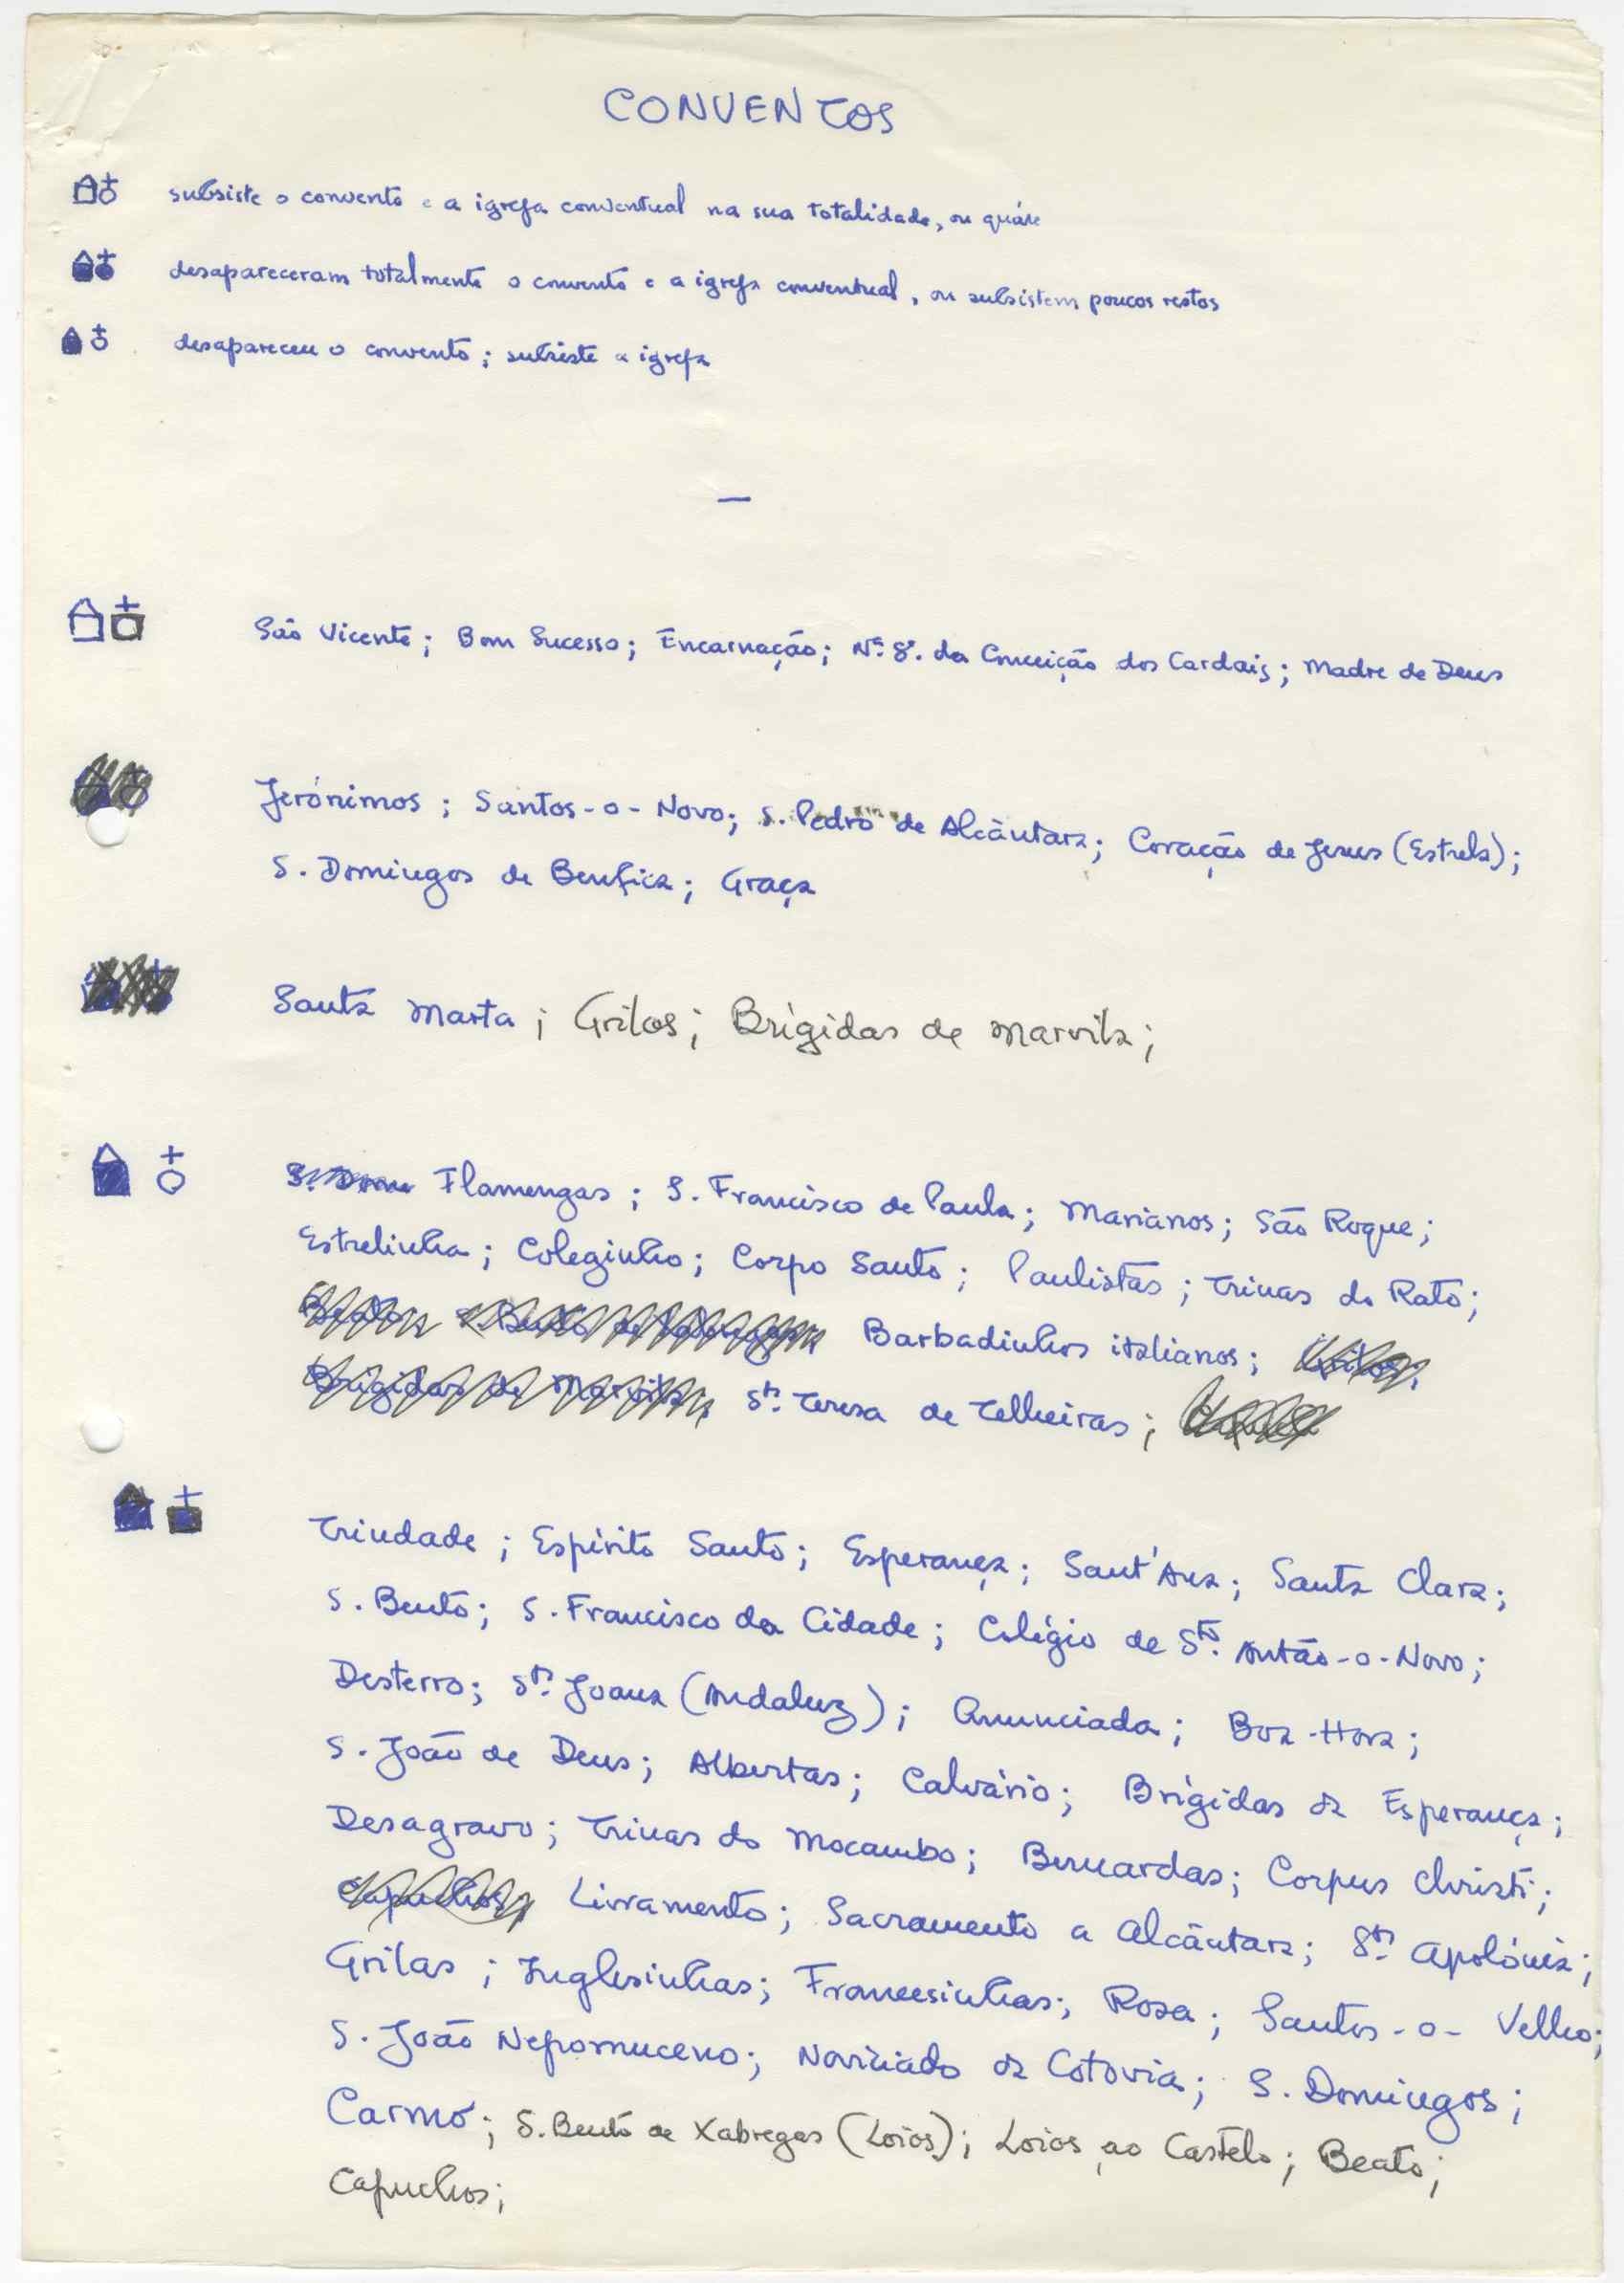 CONVENTOS
subsiste o convento e a igreja conventual na sua totalidade, ou quáse
desapareceram totalmente o convento e a igreja conventual, ou subsistem poucos restos
desapareceu o convento; subsiste a igreja
São Vicente; Bom Sucesso; Encarnação; Nª Sª. da Conceição dos Cardais; Madre de Deus
Jerónimos; Santos-o-Novo; S. Pedro de Alcântara; Coração de Jesus (Estrela);
S. Domingos de Benfica; Graça
Santa Marta; Grilos; Brígidas de Marvila;
S. Dom Flamengas; S. Francisco de Paula; Marianos; São Roque;
Estrelinha; Coleginho; Corpo Santo; Paulistas; Trinas do Rato;
Beato; S. Bento de Xabregas; Barbadinhos italianos; Grilos;
Brígidas de Marvila; Stª Teresa de Telheiras;
Trindade; Espírito Santo; Esperança; Sant'Ana; Santa Clara;
S. Bento; S. Francisco da Cidade; Colégio de Stº. Antão-o-Novo;
Desterro; Stª. Joana (Andaluz); Anunciada; Boa-Hora;
S. João de Deus; Albertas; Calvário; Brígidas da Esperança;
Desagravo; Trinas do Mocambo; Bernardas; Corpus Christi;
Capuchos; Livramento; Sacramento a Alcântara; Stª Apolónia;
Grilas; Inglesinhas; Francesinhas; Rosa; Santos-o-Velho;
S. João Nepomuceno; Noviciado da Cotovia; S. Domingos;
Carmo; S. Bento de Xabregas (Loios); Loios ao Castelo; Beato;
Capuchos;